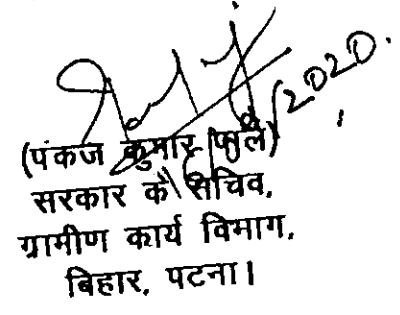 (पंकज कुमार पाल)
सरकार के सचिव,
ग्रामीण कार्य विभाग,
बिहार, पटना।